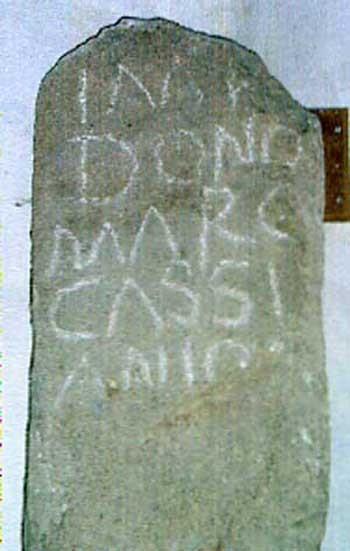 DONO
MARC
CASSI
ANIO